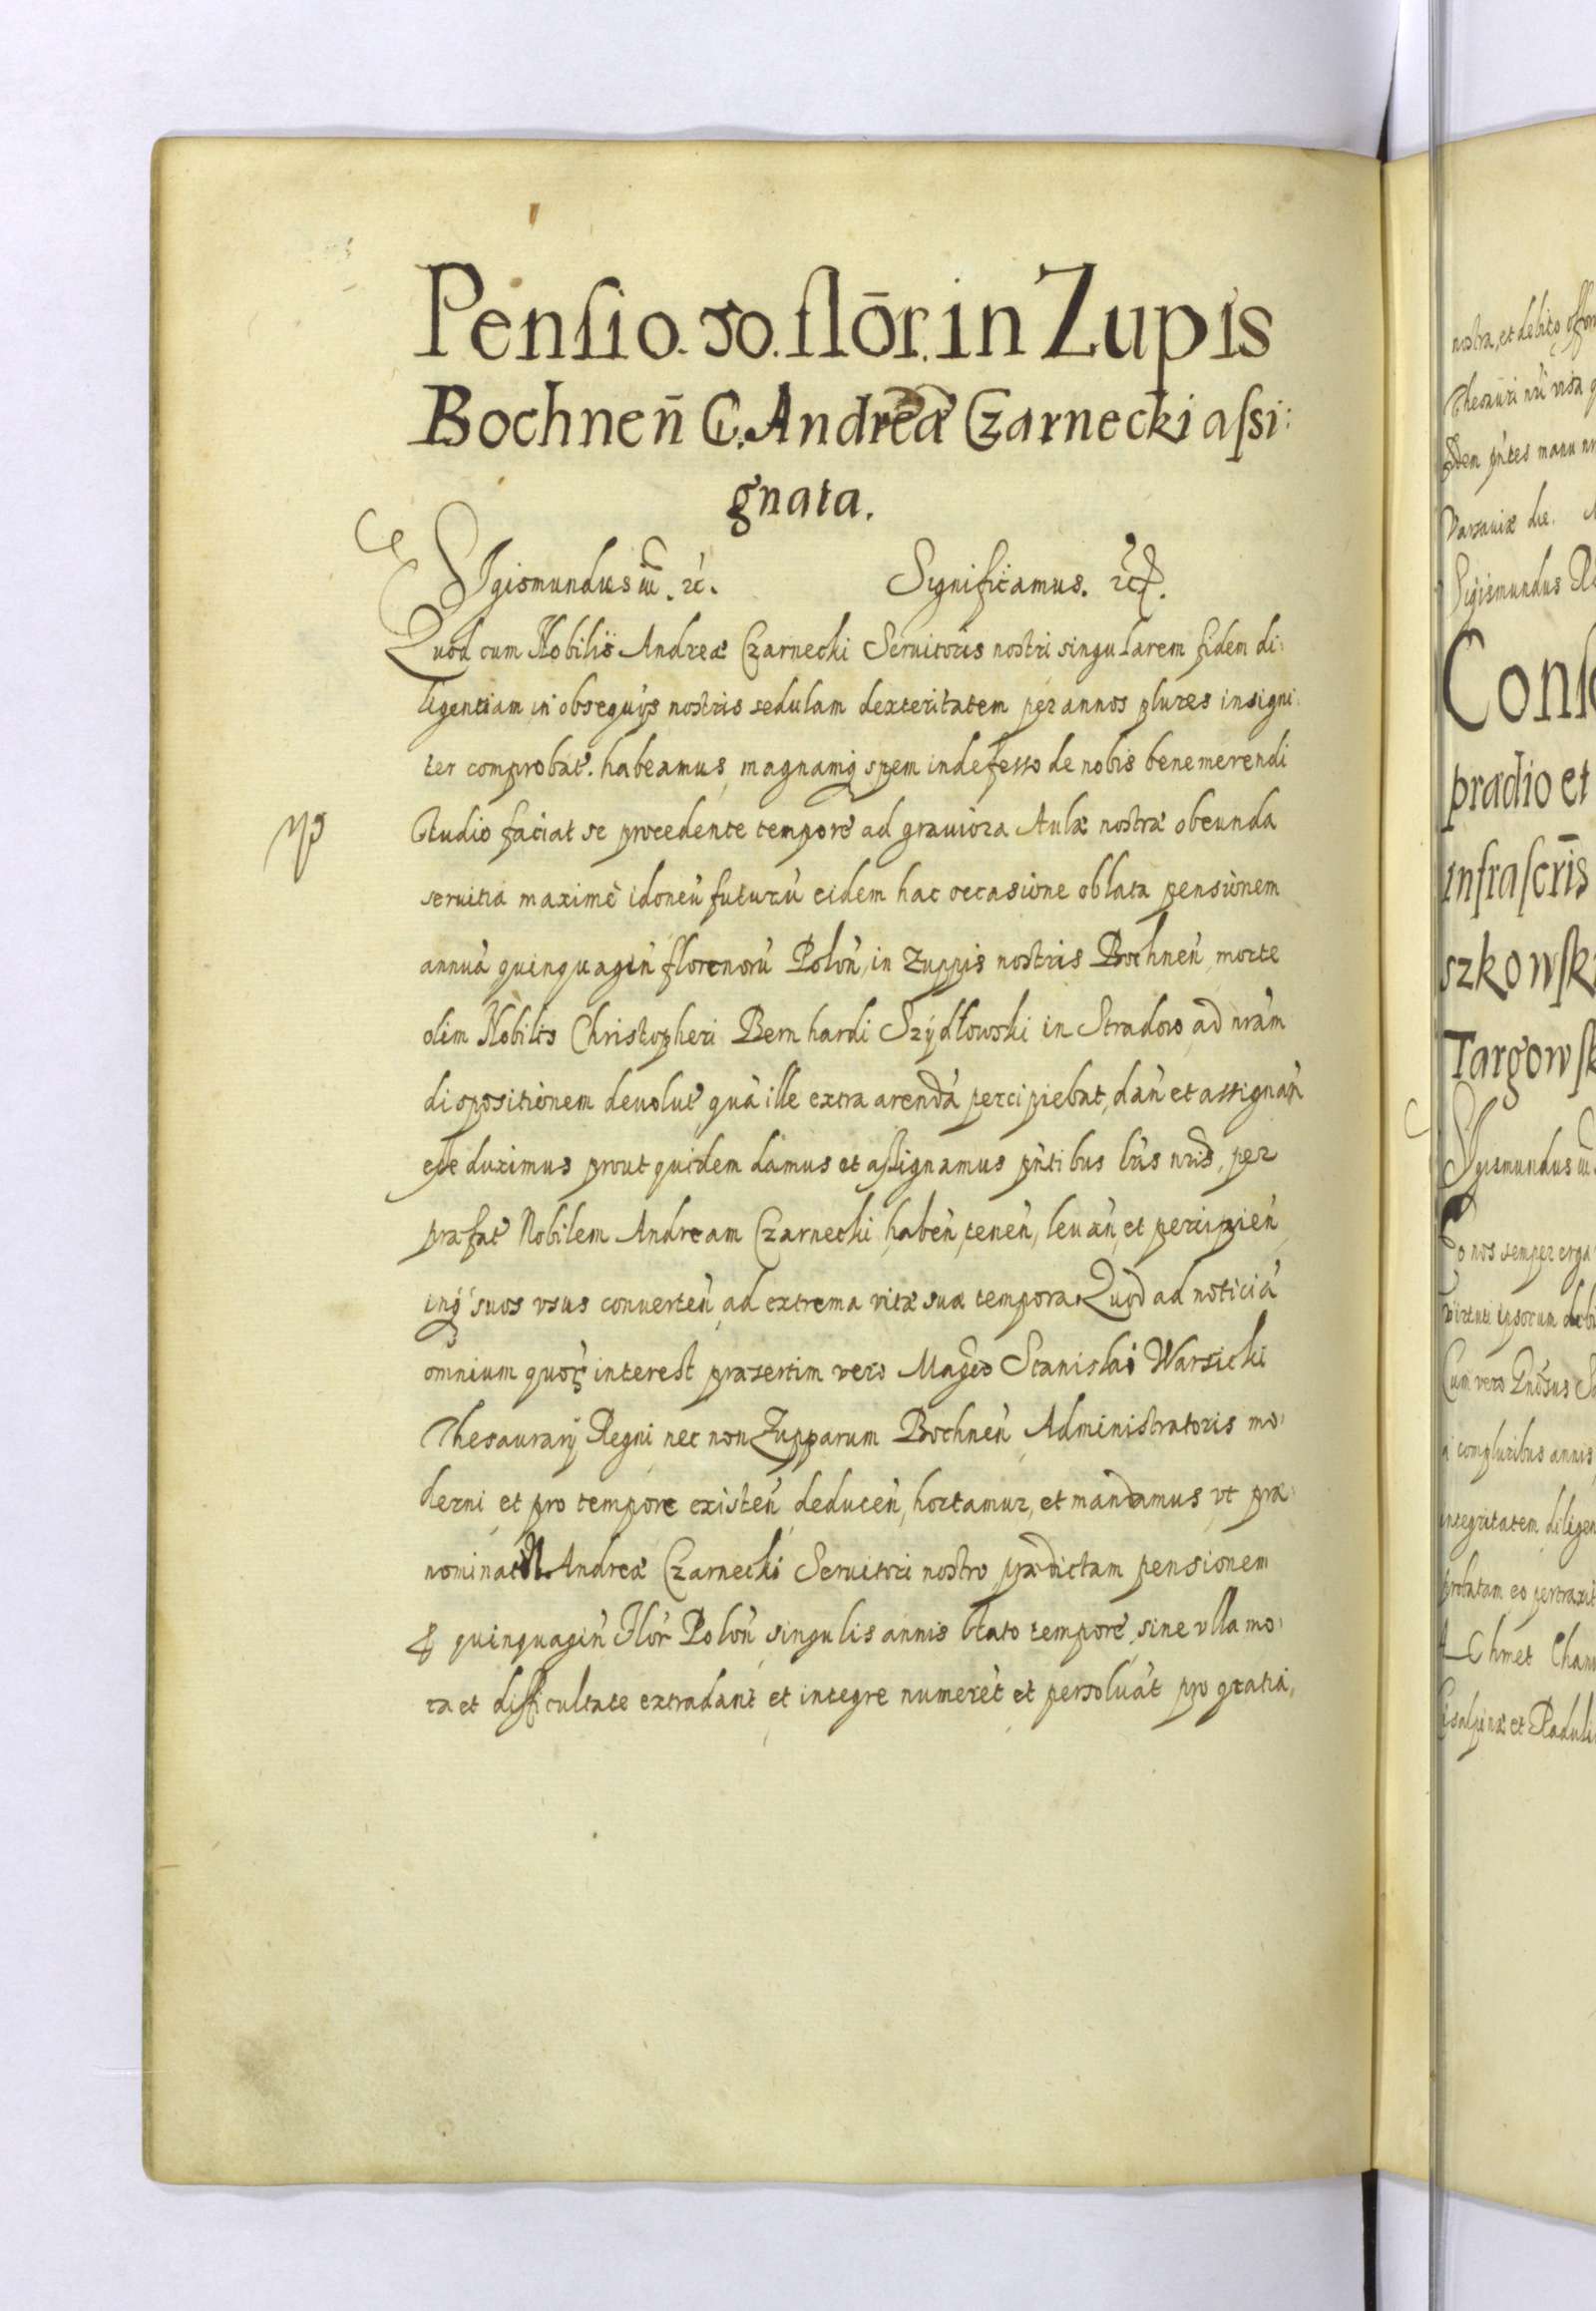 Pensio. 50. flōr. in Zupis
Bochnen̄ G. Andreæ Czarnecki assi:
gnata.
SIgismundus iii. etc. Significamus. etc.
Quod cum Nobilis Andreæ Czarnecki Seruitoris nostri singularem fidem di:
ligentiam in obsequijs nostris sedulam dexteritatem per annos plures insigni:
ter comprobat. habeamus, magnamq spem indefesso de nobis benemerendi
studio faciat se procedente tempore ad grauiora Aulæ nostræ obeunda
seruitia maximè idoneū futurū eidem hac occasione oblata pensionem
annuā quinquagin̄ florenorū Polon̄, in Zuppis nostris Bochnen̄, morte
olim Nobilis Christopheri Bernhardi Szÿdłowski in Stradow, ad nrām
dispositionem deuolut quā ille extra arendā percipiebat, dan̄ et assignan̄
esse duximus prout quidem damus et assignamus pn̄tibus lrīs nrīs, per
præfat Nobilem Andream Czarnecki, haben̄, tenen̄, leuan̄, et percipien̄,
inq suos vsus conuerten̄, ad extrema vitæ suæ tempora. Quod ad noticiā
omnium quoꝝ interest præsertim vero Magco Stanislai Warsicki
Thesaurarij Regni nec non Zupparum Bochnen̄ Administratoris mo:
derni et pro tempore existen̄ deducen̄, hortamur, et mandamus, vt præ:
nominat N. Andreæ Czarnecki Seruitori nostro prædictam pensionem
quinquagin̄ Flor Polon̄ singulis annis stato tempore, sine vlla mo:
ra et difficultate extradant et integre numerēt et persoluāt pro gratiā,
nostra, et debito
Thesauri nri
manu
Varsauiæ die.
Sigismundus
pradio et
infrascrīs
szkowsk
Targowsk
SIgismundus iii
o nos semper erga
virtuti ipsorum
Cum vero
compluribus annis
integritatem, diligen
probatam eo pertraxit
Achmet Cham
et Paduli